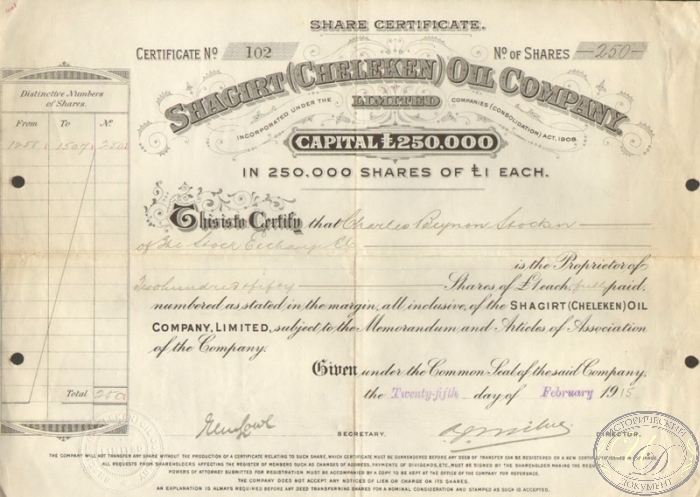 SHARE CERTIFICATE.
CERTIFICATE No 102
No OF SHARES —250—
SHAGIRT (CHELEKEN) OIL COMPANY
LIMITED
INCORPORATED UNDER THE COMPANIES (CONSOLIDATION) ACT, 1908
CAPITAL £250,000
IN 250,000 SHARES OF £1 EACH.
Distinctive Numbers
of Shares.
From To No
1258 1507 250
This is to Certify that Charles Beynon
of The Stock Exchange E.C.
is the Proprietor of
Two hundred & fifty Shares of £1 each, fully paid,
numbered as stated in the margin, all inclusive, of the SHAGIRT (CHELEKEN) OIL
COMPANY, LIMITED, subject to the Memorandum and Articles of Association
of the Company.
Given under the Common Seal of the said Company,
the Twenty-fifth day of February 1915
Total 250
SECRETARY.
DIRECTOR.
THE COMPANY WILL NOT TRANSFER ANY SHARE WITHOUT THE PRODUCTION OF A CERTIFICATE RELATING TO SUCH SHARE, WHICH CERTIFICATE MUST BE SURRENDERED BEFORE ANY DEED OF TRANSFER CAN BE REGISTERED OR A NEW CERTIFICATE ISSUED IN EXCHANGE.
ALL REQUESTS FROM SHAREHOLDERS AFFECTING THE REGISTER OF MEMBERS SUCH AS CHANGES OF ADDRESS, PAYMENTS OF DIVIDENDS, ETC., MUST BE SIGNED BY THE SHAREHOLDER MAKING THE REQUEST.
POWERS OF ATTORNEY SUBMITTED FOR REGISTRATION MUST BE ACCOMPANIED BY A COPY TO BE KEPT AT THE OFFICE OF THE COMPANY FOR REFERENCE.
THE COMPANY DOES NOT ACCEPT ANY NOTICES OF LIEN OR CHARGE ON ITS SHARES.
AN EXPLANATION IS ALWAYS REQUIRED BEFORE ANY DEED TRANSFERRING SHARES FOR A NOMINAL CONSIDERATION AND STAMPED AS SUCH IS ACCEPTED.
ИСТОРИЧЕСКИЙ
ДОКУМЕНТ